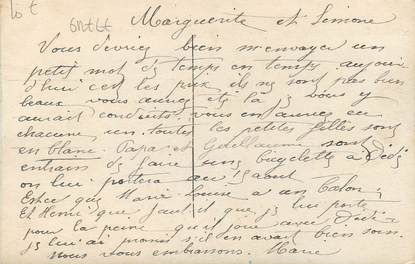 10 €
Marguerite et Simone
Vous devriez bien m'envoyer un
petit mot de temps en temps aujour
d'hui c'est les prix, ils ne sont pas bien
beaux vous auriez été là je vous y
aurait conduits. vous en auriez eu
chacune un. toutes les petites filles sont
en blanc. Papa et Guillaume sont
entrain de faire une bicyclette à Dédé
on lui portera au 15 aout
Estce que Marie Louise a un
Et Henri que faut il que je lui porte
pour la peine qu'il joue avec Dédé
je lui ai promis s'il en avait bien soin.
Nous vous embrassons. Marie